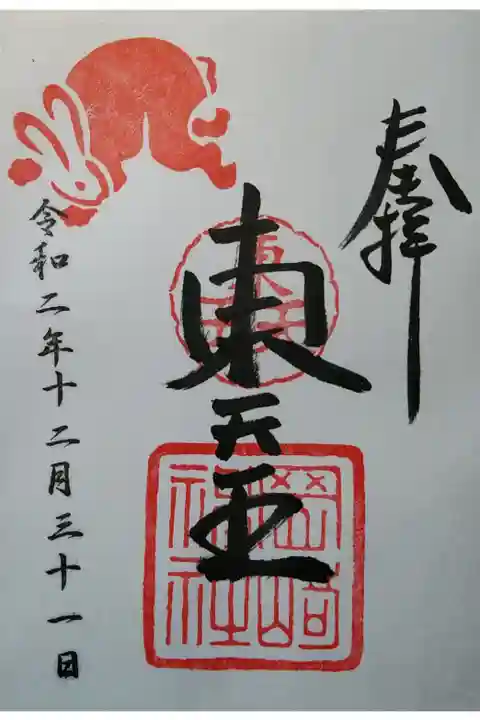 奉拝
東天王
岡崎神社
令和二年十二月三十一日